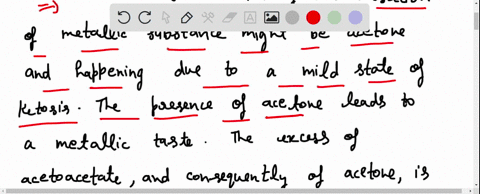 of metallic substance might be acetone
and happening due to a mild state of
ketosis. The presence of acetone leads to
a metallic taste. The excess of
acetoacetate, and consequently of acetone, is